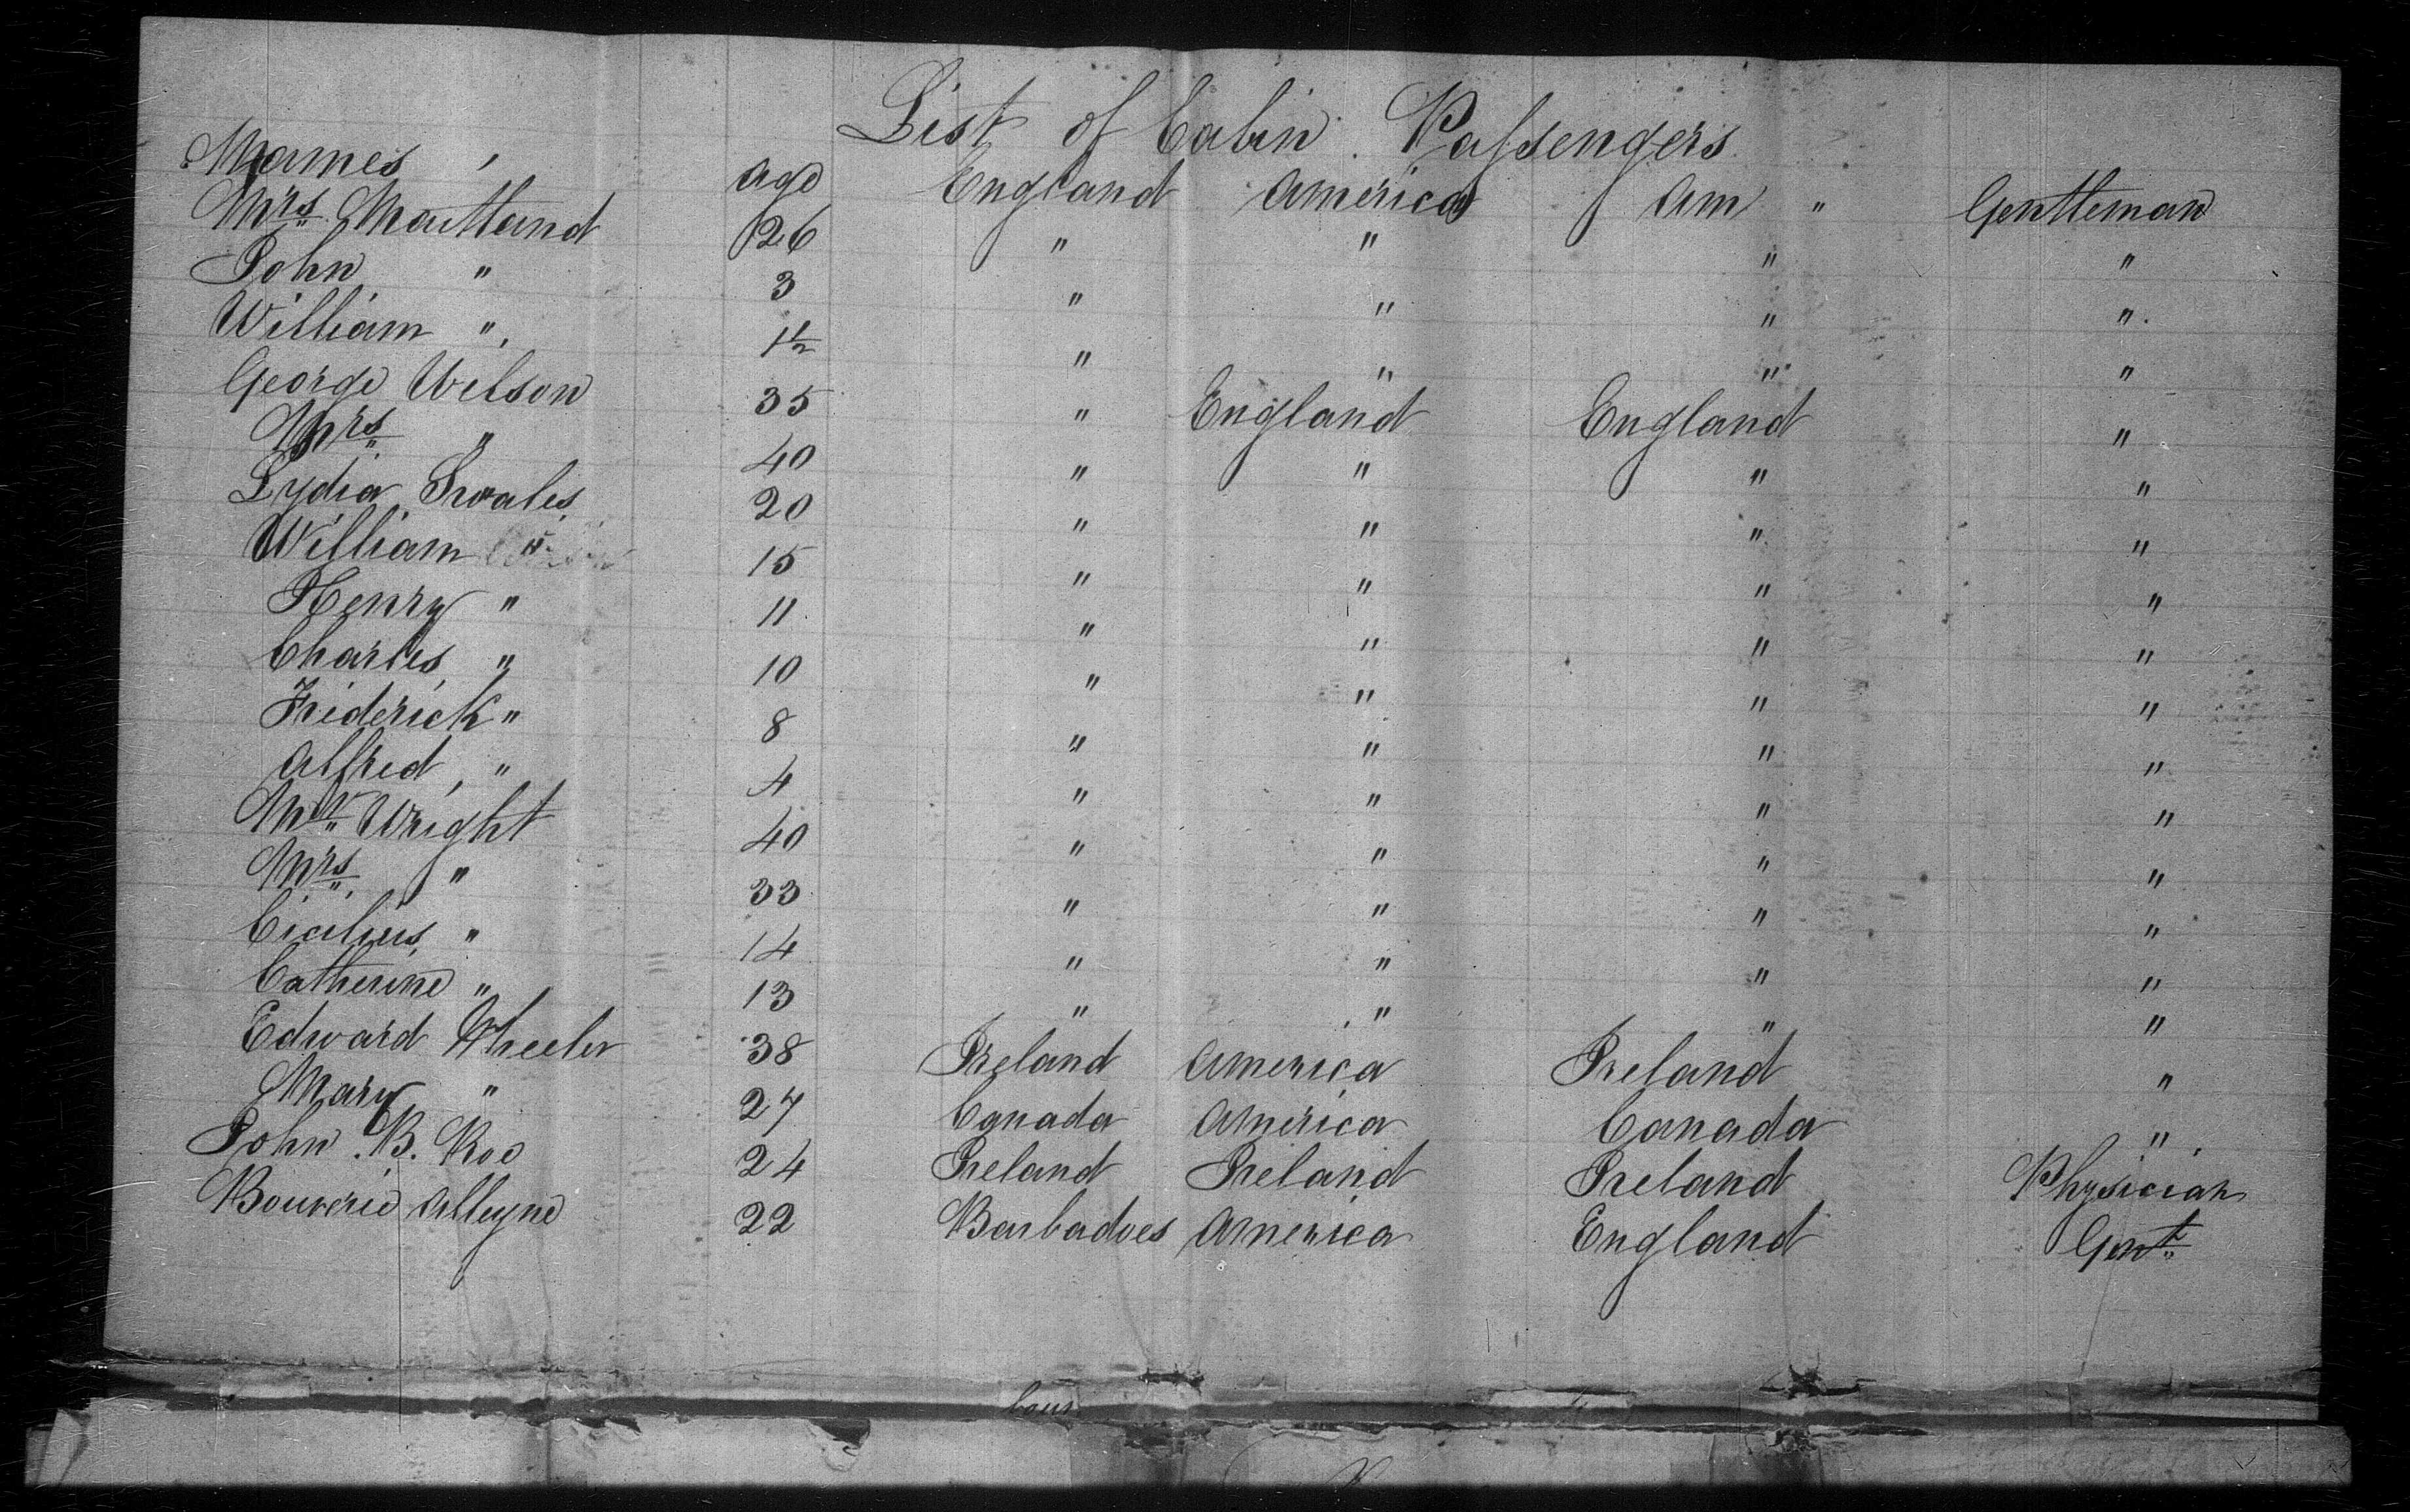 List of Cabin Passengers
Names , age England America Am " Gentleman
Mrs Maitland 26 " " " "
John " 3 " " " "
William " 1½ " " " "
George Wilson 35 " England England "
Mrs " 40 " " " "
Lydia Swales 20 " " " "
William " 15 " " " "
Henry " 11 " " " "
Charles " 10 " " " "
Friderick " 8 " " " "
Alfred " 4 " " " "
Mr Wright 40 " " " "
Mrs " 33 " " " "
Cicilius " 14 " " " "
Catherine " 13 " " " "
Edward Wheeler 38 Ireland America Ireland "
Mary " 27 Canada America Canada "
John B. Roe 24 Ireland Ireland Ireland Physician
Bouverie Alleyne 22 Barbadoes America England Gent